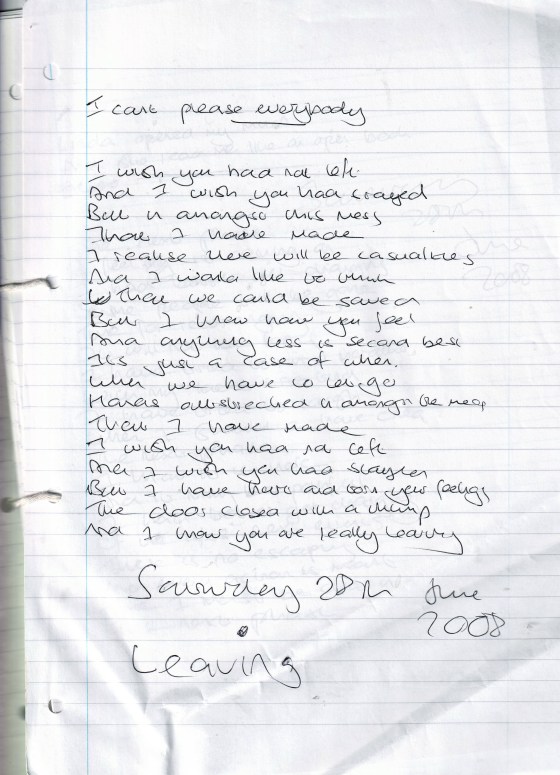 I cant please everybody
I wish you had not left
And I wish you had stayed
But in amongst this mess
That I have made
I realise there will be casualties
And I would like to think
That we could be saved
But I know how you feel
And anything less is second best
It's just a case of when.
When we have to let go
Hands outstretched in amongst the mess
That I have made
I wish you had not left
And I wish you had stayed
But I have hurt and torn your feelings
The door closed with a thump
And I know you are really leaving
Saturday 28th June
2008
Leaving